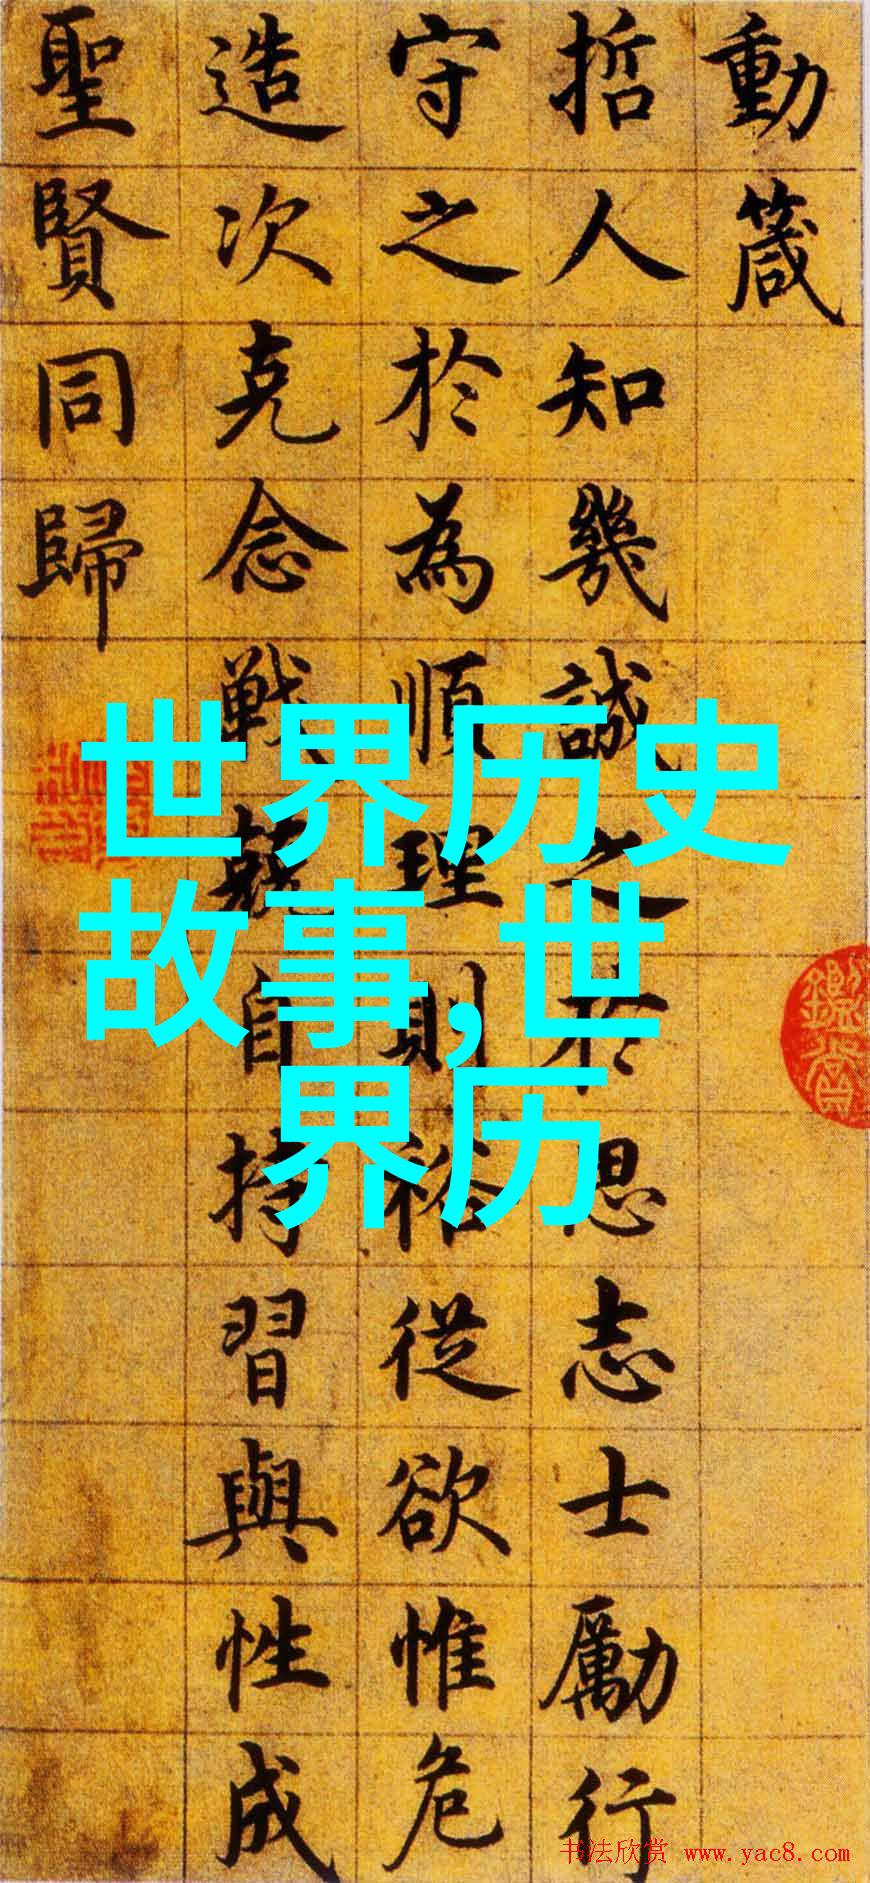 動箴
哲人知幾誠之於思志士勵行
守之於為順理則裕從欲惟危
造次克念戰兢自持習與性成
聖賢同歸
世界历史
故事,世
界历
书法欣赏 www.yac8.com